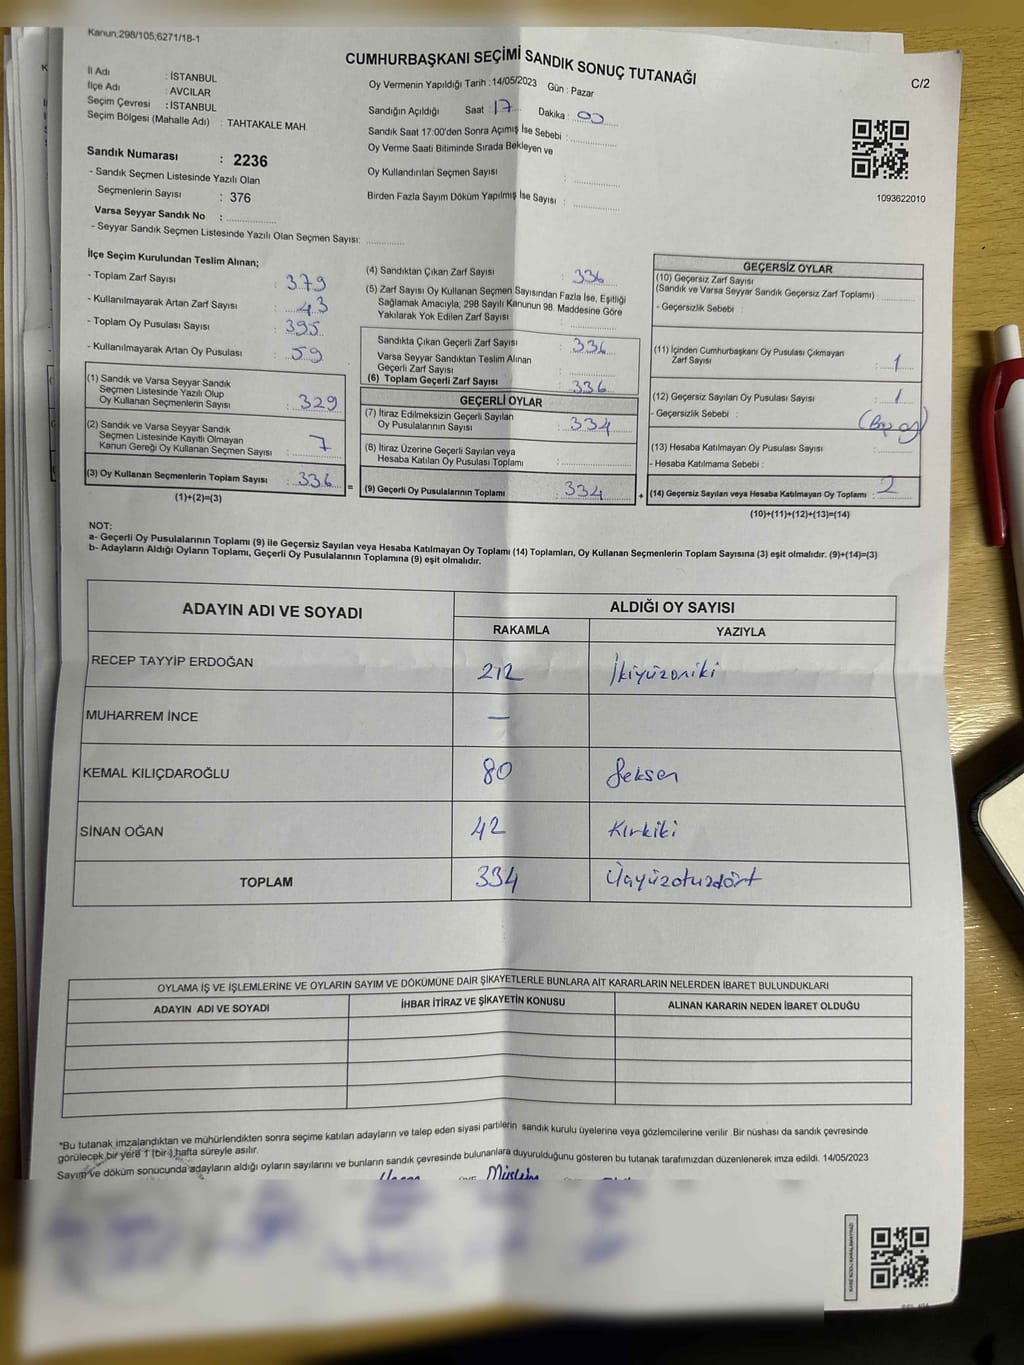 Kanun,298/105,6271/18-1
CUMHURBAŞKANI SEÇİMİ SANDIK SONUÇ TUTANAĞI
C/2
İl Adı : İSTANBUL
İlçe Adı : AVCILAR
Seçim Çevresi : İSTANBUL
Seçim Bölgesi (Mahalle Adı) : TAHTAKALE MAH.
Oy Vermenin Yapıldığı Tarih : 14/05/2023 Gün : Pazar
Sandığın Açıldığı Saat 17 Dakika : 00
Sandık Saat 17:00'den Sonra Açımış İse Sebebi :
Oy Verme Saati Bitiminde Sırada Bekleyen ve
Oy Kullandırılan Seçmen Sayısı :
Birden Fazla Sayım Döküm Yapılmış İse Sayısı :
1093622010
Sandık Numarası : 2236
- Sandık Seçmen Listesinde Yazılı Olan
Seçmenlerin Sayısı : 376
Varsa Seyyar Sandık No :
- Seyyar Sandık Seçmen Listesinde Yazılı Olan Seçmen Sayısı:
İlçe Seçim Kurulundan Teslim Alınan;
- Toplam Zarf Sayısı : 379
- Kullanılmayarak Artan Zarf Sayısı : 43
- Toplam Oy Pusulası Sayısı : 395
- Kullanılmayarak Artan Oy Pusulası : 59
(1) Sandık ve Varsa Seyyar Sandık
Seçmen Listesinde Yazılı Olup
Oy Kullanan Seçmenlerin Sayısı : 329
(2) Sandık ve Varsa Seyyar Sandık
Seçmen Listesinde Kayıtlı Olmayan
Kanun Gereği Oy Kullanan Seçmen Sayısı : 7
(3) Oy Kullanan Seçmenlerin Toplam Sayısı : 336
(1)+(2)=(3)
(4) Sandıktan Çıkan Zarf Sayısı : 336
(5) Zarf Sayısı Oy Kullanan Seçmen Sayısından Fazla İse, Eşitliği
Sağlamak Amacıyla; 298 Sayılı Kanunun 98. Maddesine Göre
Yakılarak Yok Edilen Zarf Sayısı :
Sandıkta Çıkan Geçerli Zarf Sayısı : 336
Varsa Seyyar Sandıktan Teslim Alınan
Geçerli Zarf Sayısı :
(6) Toplam Geçerli Zarf Sayısı : 336
GEÇERLİ OYLAR
(7) İtiraz Edilmeksizin Geçerli Sayılan
Oy Pusulalarının Sayısı : 334
(8) İtiraz Üzerine Geçerli Sayılan veya
Hesaba Katılan Oy Pusulası Toplamı :
= (9) Geçerli Oy Pusulalarının Toplamı : 334 +
GEÇERSİZ OYLAR
(10) Geçersiz Zarf Sayısı
(Sandık ve Varsa Seyyar Sandık Geçersiz Zarf Toplamı) :
- Geçersizlik Sebebi :
(11) İçinden Cumhurbaşkanı Oy Pusulası Çıkmayan
Zarf Sayısı : 1
(12) Geçersiz Sayılan Oy Pusulası Sayısı : 1
- Geçersizlik Sebebi :
(13) Hesaba Katılmayan Oy Pusulası Sayısı :
- Hesaba Katılmama Sebebi :
(14) Geçersiz Sayılan veya Hesaba Katılmayan Oy Toplamı : 2
(10)+(11)+(12)+(13)=(14)
NOT:
a- Geçerli Oy Pusulalarının Toplamı (9) ile Geçersiz Sayılan veya Hesaba Katılmayan Oy Toplamı (14) Toplamları, Oy Kullanan Seçmenlerin Toplam Sayısına (3) eşit olmalıdır. (9)+(14)=(3)
b- Adayların Aldığı Oyların Toplamı, Geçerli Oy Pusulalarının Toplamına (9) eşit olmalıdır.
ADAYIN ADI VE SOYADI ALDIĞI OY SAYISI
RAKAMLA YAZIYLA
RECEP TAYYİP ERDOĞAN 212 İkiyüzoniki
MUHARREM İNCE —
KEMAL KILIÇDAROĞLU 80 Seksen
SİNAN OĞAN 42 Kırkiki
TOPLAM 334 Üçyüzotuzdört
OYLAMA İŞ VE İŞLEMLERİNE VE OYLARIN SAYIM VE DÖKÜMÜNE DAİR ŞİKAYETLERLE BUNLARA AİT KARARLARIN NELERDEN İBARET BULUNDUKLARI
ADAYIN ADI VE SOYADI İHBAR İTİRAZ VE ŞİKAYETİN KONUSU ALINAN KARARIN NEDEN İBARET OLDUĞU
*Bu tutanak imzalandıktan ve mühürlendikten sonra seçime katılan adayların ve talep eden siyasi partilerin sandık kurulu üyelerine veya gözlemcilerine verilir. Bir nüshası da sandık çevresinde
görülecek bir yere 1 (bir ) hafta süreyle asılır.
Sayım ve döküm sonucunda adayların aldığı oyların sayılarını ve bunların sandık çevresinde bulunanlara duyurulduğunu gösteren bu tutanak tarafımızdan düzenlenerek imza edildi. 14/05/2023